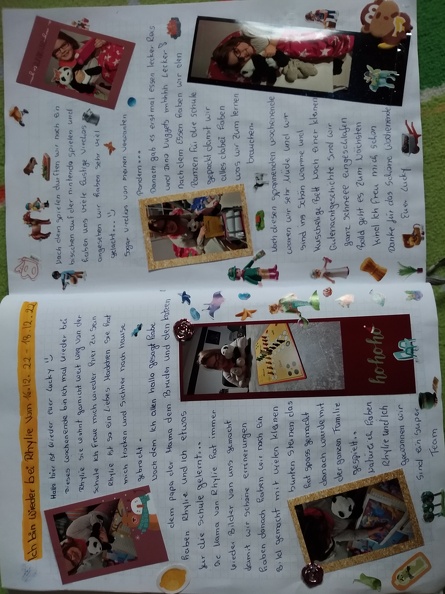 Ich bin wieder bei Rhylie vom 16.12.22 - 18.12.22
Hallo hier ist wieder euer Lucky
dieses wochenende bin ich mal wieder bei
Rhylie sie wohnt garnicht weit weg von der
Schule ich freue mich wieder hier zu sein
Rhylie ist so ein liebes Mädchen sie hat
mich trocken und sicher nach Hause
gebracht...
Nach dem ich allen hallo gesagt habe
dem papa der Mama dem Bruder und den
haben Rhylie und ich etwas
für die schule gelernt...
Die Mama von Rhylie hat immer
wieder Bilder von uns gemacht
damit wir schöne erinerungen
haben danach haben wir noch ein
Bild gemacht mit vielen kleinen
bunten steinen das
hat spass gemacht
danach wurde mit
der ganzen Familie
gespielt..
dadurch haben
Rhylie und ich
gewonnen wir
sind ein super
Team
hohoho
Nach dem spielen durften wir noch ein
bisschen auf der matratze spielen und
haben uns viele lustige videos
angesehen wir haben sehr viel
gelacht...
Sogar videos von meinen verwandten
Pandas...
Dannach gab es erstmal essen lecker Reis
und Dino Nuggets mhhhh Lecker
nach dem Essen haben wir den
Ranzen für die schule
gepackt damit wir
alles dabei haben
was wir zum lernen
brauchen.
Nach diesen spannenden wochenende
waren wir sehr müde und wir
sind ins schön warme und
kuschelige Bett nach einer kleinen
Gutenachtgeschichte sind wir
ganz schnell eingeschlafen
Bald geht es zum nächsten
kind ich freu mich schon
Danke für das schöne Wochenende
Euer Lucky